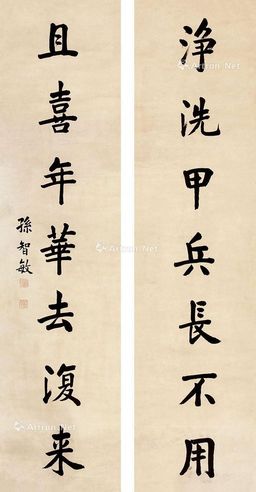 净洗甲兵長不用
且喜年華去復来
孫智敏
Artron.Net
Artron.Net
Artron.Net
Artron.Net
Artron.Net